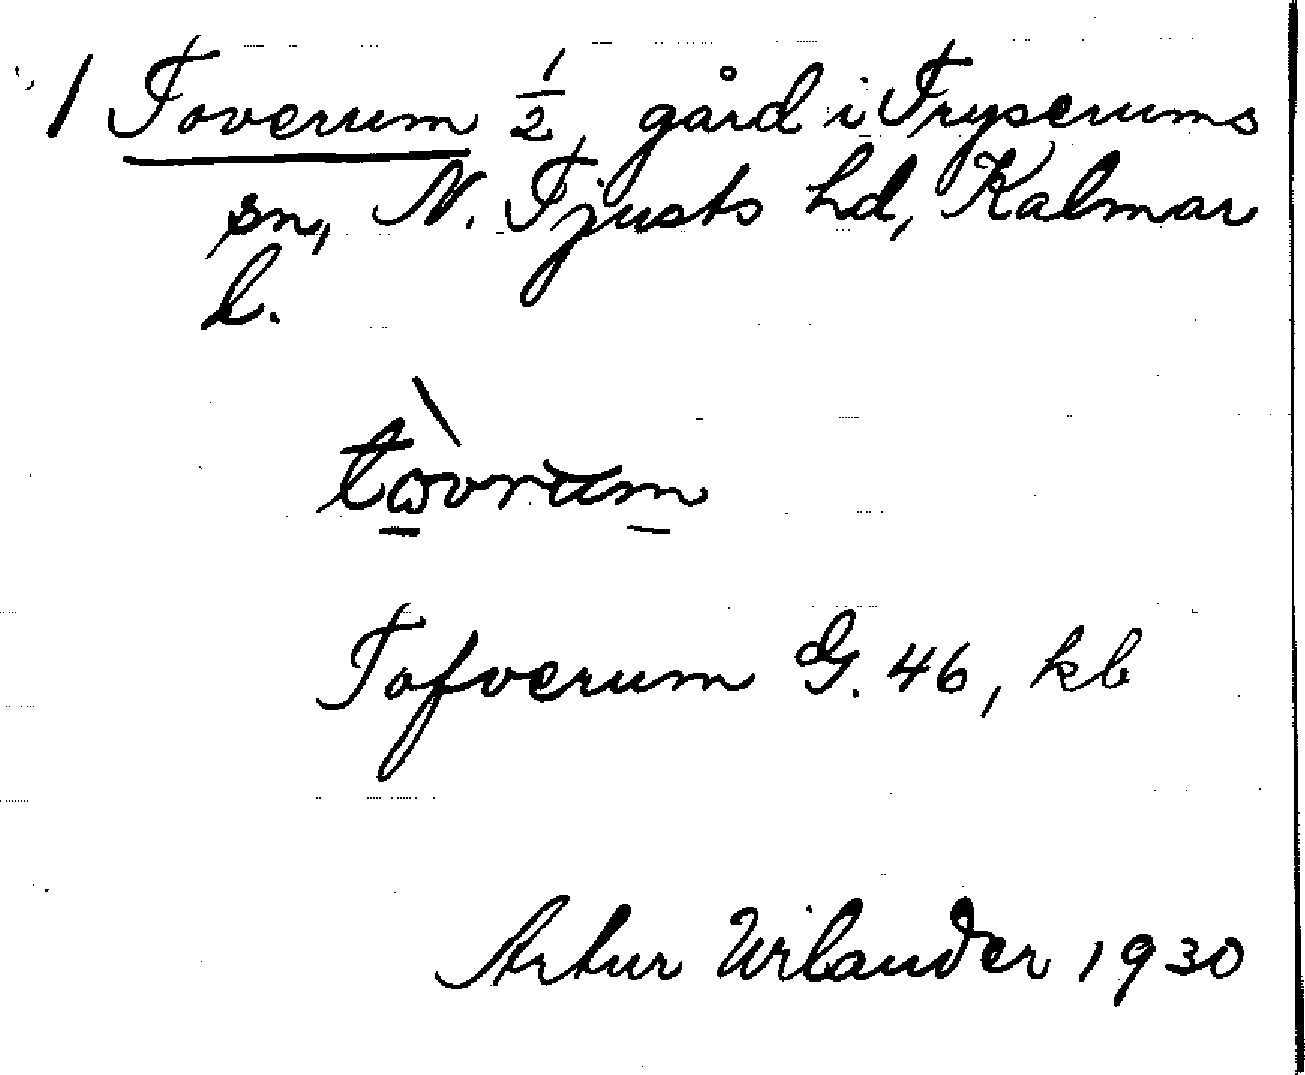 1 Toverum 1/2, gård i Tryserums
sn, N. Tjusts hd, Kalmar
l.
tòvrum
Tofverum G. 46, kb
Artur Wilander 1930